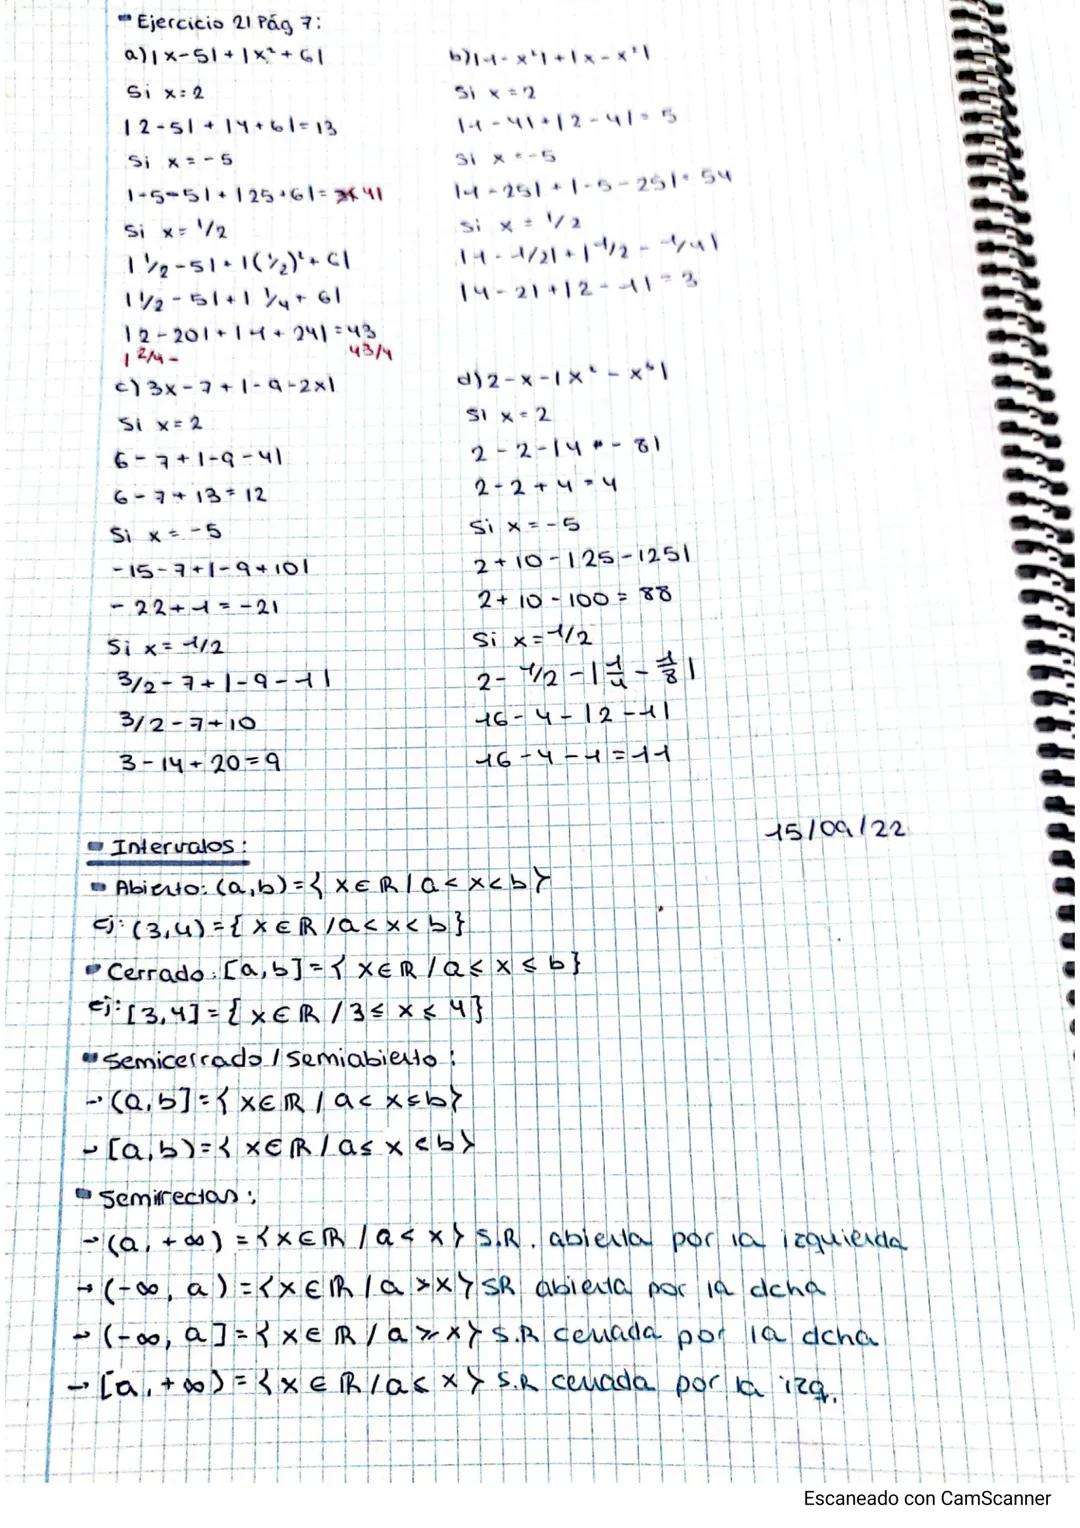 Ejercicio 21 Pág 7:
a) |x-5| + |x² + 6|
Si x=2
|2-5| + |4+6| = 13
Si x = -5
|-5-5| + |25+6| = 41
Si x = 1/2
|1/2 - 5| + |(1/2)² + 6|
|1/2 - 5| + |1/4 + 6|
|2-20| + |1 + 24| = 43
|2/4 - 43/4
b) |1 - x²| + |x - x²|
Si x = 2
|1 - 4| + |2 - 4| = 5
Si x = -5
|1 - 25| + |-5 - 25| = 54
Si x = 1/2
|1 - 1/2| + |1/2 - 1/4|
|4 - 2| + |2 - 1| = 3
c) 3x - 7 + |-9 - 2x|
Si x = 2
6 - 7 + |-9 - 4|
6 - 7 + 13 = 12
Si x = -5
-15 - 7 + |-9 + 10|
-22 + 1 = -21
Si x = 1/2
3/2 - 7 + |-9 - 1|
3/2 - 7 + 10
3 - 14 + 20 = 9
d) 2 - x - |x² - x³|
Si x = 2
2 - 2 - |4 - 8|
2 - 2 + 4 = 4
Si x = -5
2 + 10 - |25 - 125|
2 + 10 - 100 = 88
Si x = 1/2
2 - 1/2 - |1/4 - 1/8|
16 - 4 - |2 - 1|
16 - 4 - 1 = 11
15/09/22
Intervalos:
Abierto: (a,b) = { x∈R / a < x < b }
ej: (3,4) = { x∈R / a < x < b }
Cerrado: [a,b] = { x∈R / a ≤ x ≤ b }
ej: [3,4] = { x∈R / 3 ≤ x ≤ 4 }
Semicerrado / Semiabierto:
→ (a,b] = { x∈R / a < x ≤ b }
→ [a,b) = { x∈R / a ≤ x < b }
Semirrectas:
→ (a, +∞) = { x∈R / a < x } S.R. abierta por la izquierda
→ (-∞, a) = { x∈R / a > x } SR abierta por la dcha
→ (-∞, a] = { x∈R / a ≥ x } S.R cerrada por la dcha
→ [a, +∞) = { x∈R / a ≤ x } S.R cerrada por la izq.
Escaneado con CamScanner